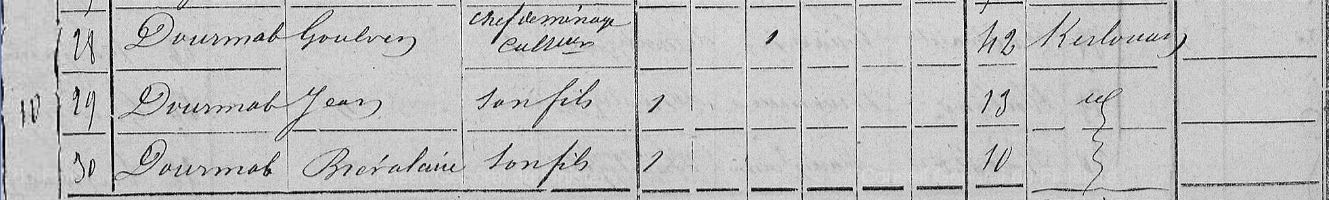 28 Dourmab Goulven chef de ménage 1 42 Kerlouan
Cultiv
10 29 Dourmab Jean son fils 1 13 id
30 Dourmab Brévalaire son fils 1 10